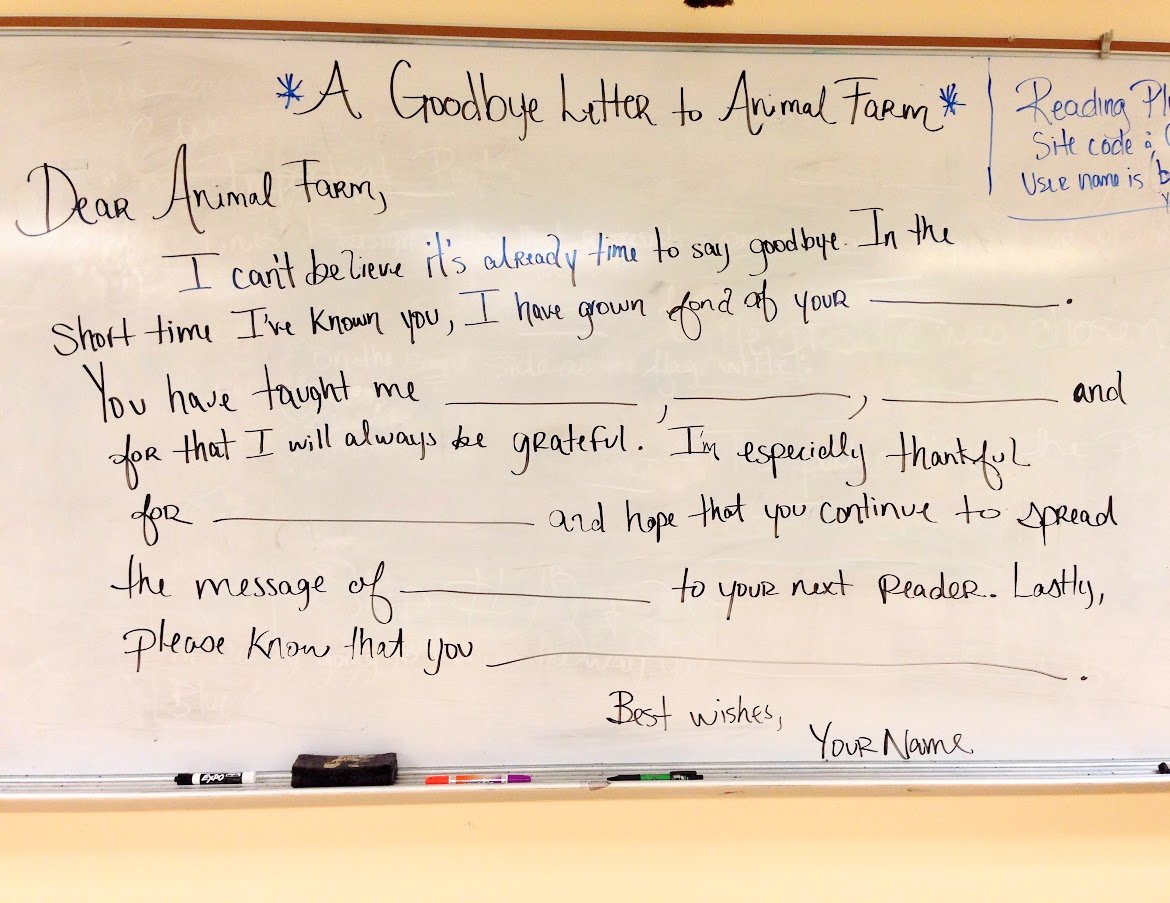 *A Goodbye Letter to Animal Farm*
Dear Animal Farm,
I can't believe it's already time to say goodbye. In the
short time I've known you, I have grown fond of your __________.
You have taught me __________, __________, __________ and
for that I will always be grateful. I'm especially thankful
for __________ and hope that you continue to spread
the message of __________ to your next reader. Lastly,
please know that you __________.
Best wishes,
Your Name
Reading
Site code :
User name is
EXPO